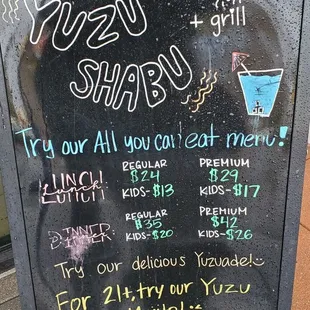 YUZU
+ grill
SHABU
Try our All you can eat menu!
REGULAR PREMIUM
LUNCH Lunch $24 $29
KIDS-$13 KIDS-$17
REGULAR PREMIUM
DINNER $35 $42
KIDS-$20 KIDS-$26
Try our delicious Yuzuade!
For 21+, try our Yuzu